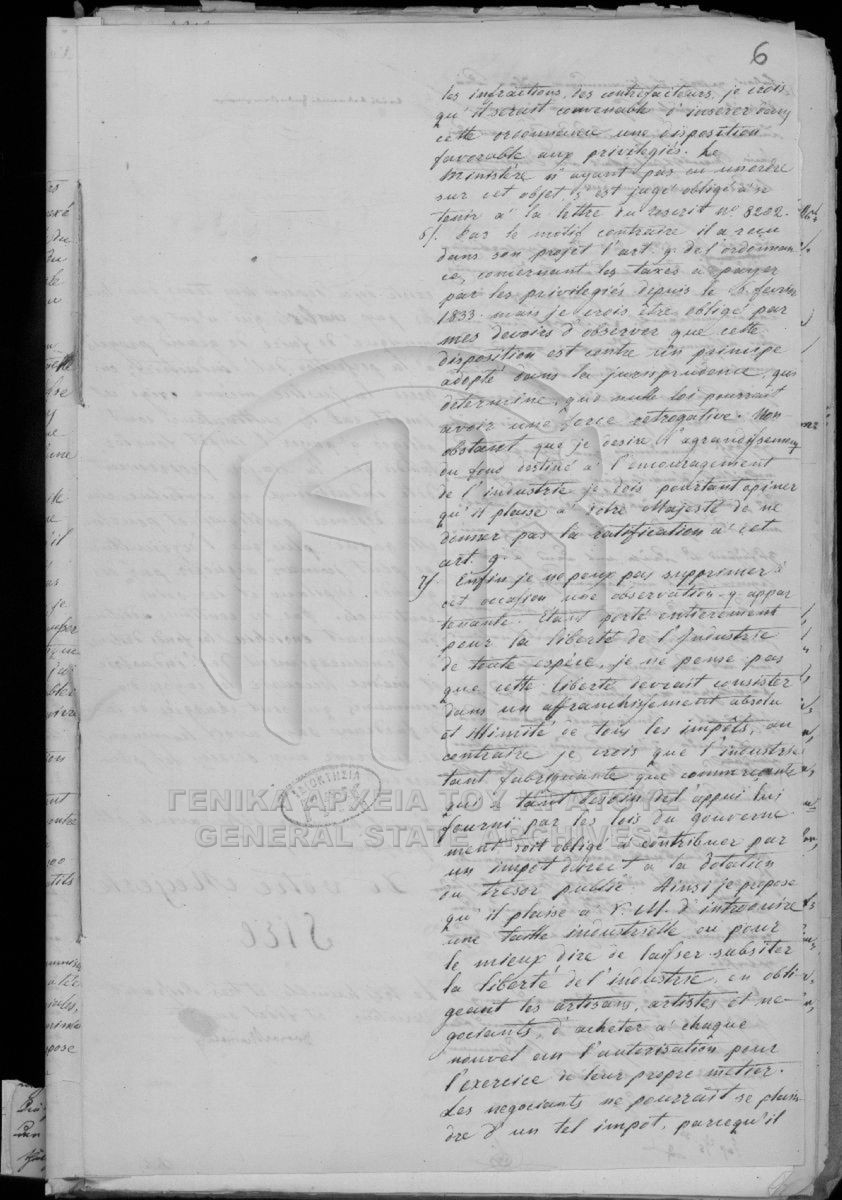 6
les infractions, des contrefacteurs, je crois
qu'il serait convenable d'inserer dans
cette ordonnance une disposition
favorable aux privilegiés. Le
Ministère n'ayant pas eu un ordre
sur cet objet s'est jugé obligé à se
tenir à la lettre du rescrit nº 8202.
6/. Par le motif contraire il a reçu
dans son projet l'art. 9. de l'ordonnan
ce, concernant les taxes à payer
par les privilegiés depuis le 6 fevrier
1833. mais je crois être obligé par
mes devoirs d'observer que cette
disposition est contre un principe
adopté dans la jurisprudence, qui
determine, que nulle loi pourrait
avoir une force retrogative. Non
obstant que je desire l'agrandissement
du fond destiné à l'encouragement
de l'industrie je dois pourtant opiner
qu'il plaise à Votre Majesté de ne
donner pas la ratification à cet
art. 9.
7/. Enfin je ne peux pas supprimer à
cet occasion une observation y appar
tenante. Etant porté entierement
pour la liberté de l'Industrie
de toute espéce, je ne pense pas
que cette liberté devrait consister
dans un affranchissement absolu
et illimité de tous les impôts, au
contraire je crois que l'industrie
tant fabriquante que commerçante
qui a tant besoin de l'appui lui
fourni par les lois du gouverne
ment soit obligé à contribuer par
un impot direct à la dotation
du tresor public. Ainsi je propose
qu'il plaise à V. M. d'introduire
une taille industrielle ou pour
le mieux dire de laisser subsister
la liberté de l'industrie, en obli
geant les artisans, artistes et ne-
gociants, d'acheter à chaque
nouvel an l'autorisation pour
l'exercice de leur propre métier.
Les negociants ne pourrait se plain
dre d'un tel impot, parcequ'il
ΙΔΙΟΚΤΗΣΙΑ
ΓΕΝΙΚΑ ΑΡΧΕΙΑ ΤΟΥ ΚΡΑΤΟΥΣ
GENERAL STATE ARCHIVES